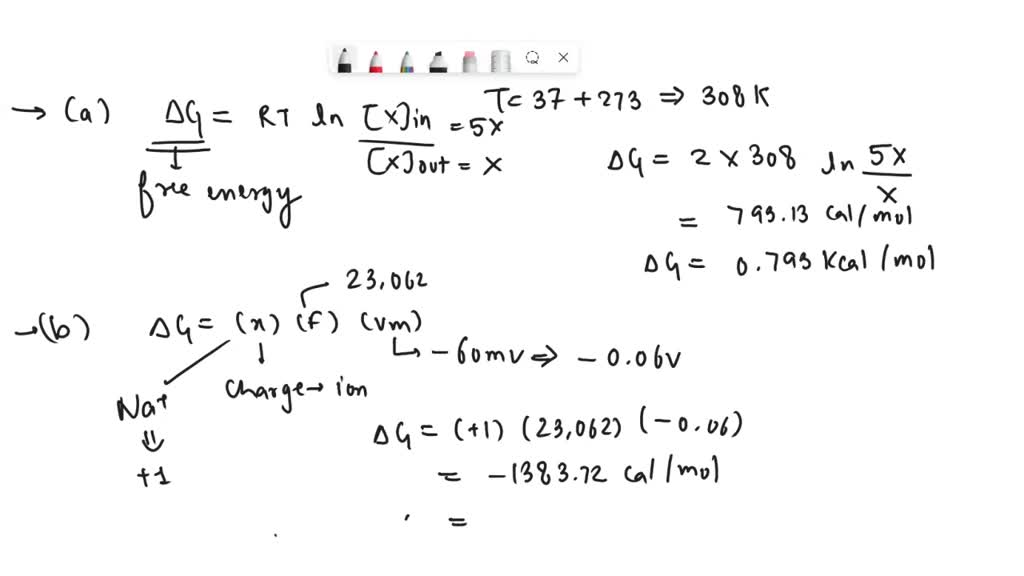 → (a) ΔG = RT ln [X]in = 5X / [X]out = X
free energy
T = 37 + 273 ⇒ 308 K
ΔG = 2 × 308 ln 5X / X
= 793.13 Cal/mol
ΔG = 0.793 Kcal/mol
→ (b) ΔG = (x) (f) (vm)
23,062
→ -60mv ⇒ -0.06v
Na+
⇓
+1
Charge → ion
ΔG = (+1) (23,062) (-0.06)
= -1383.72 Cal/mol
=